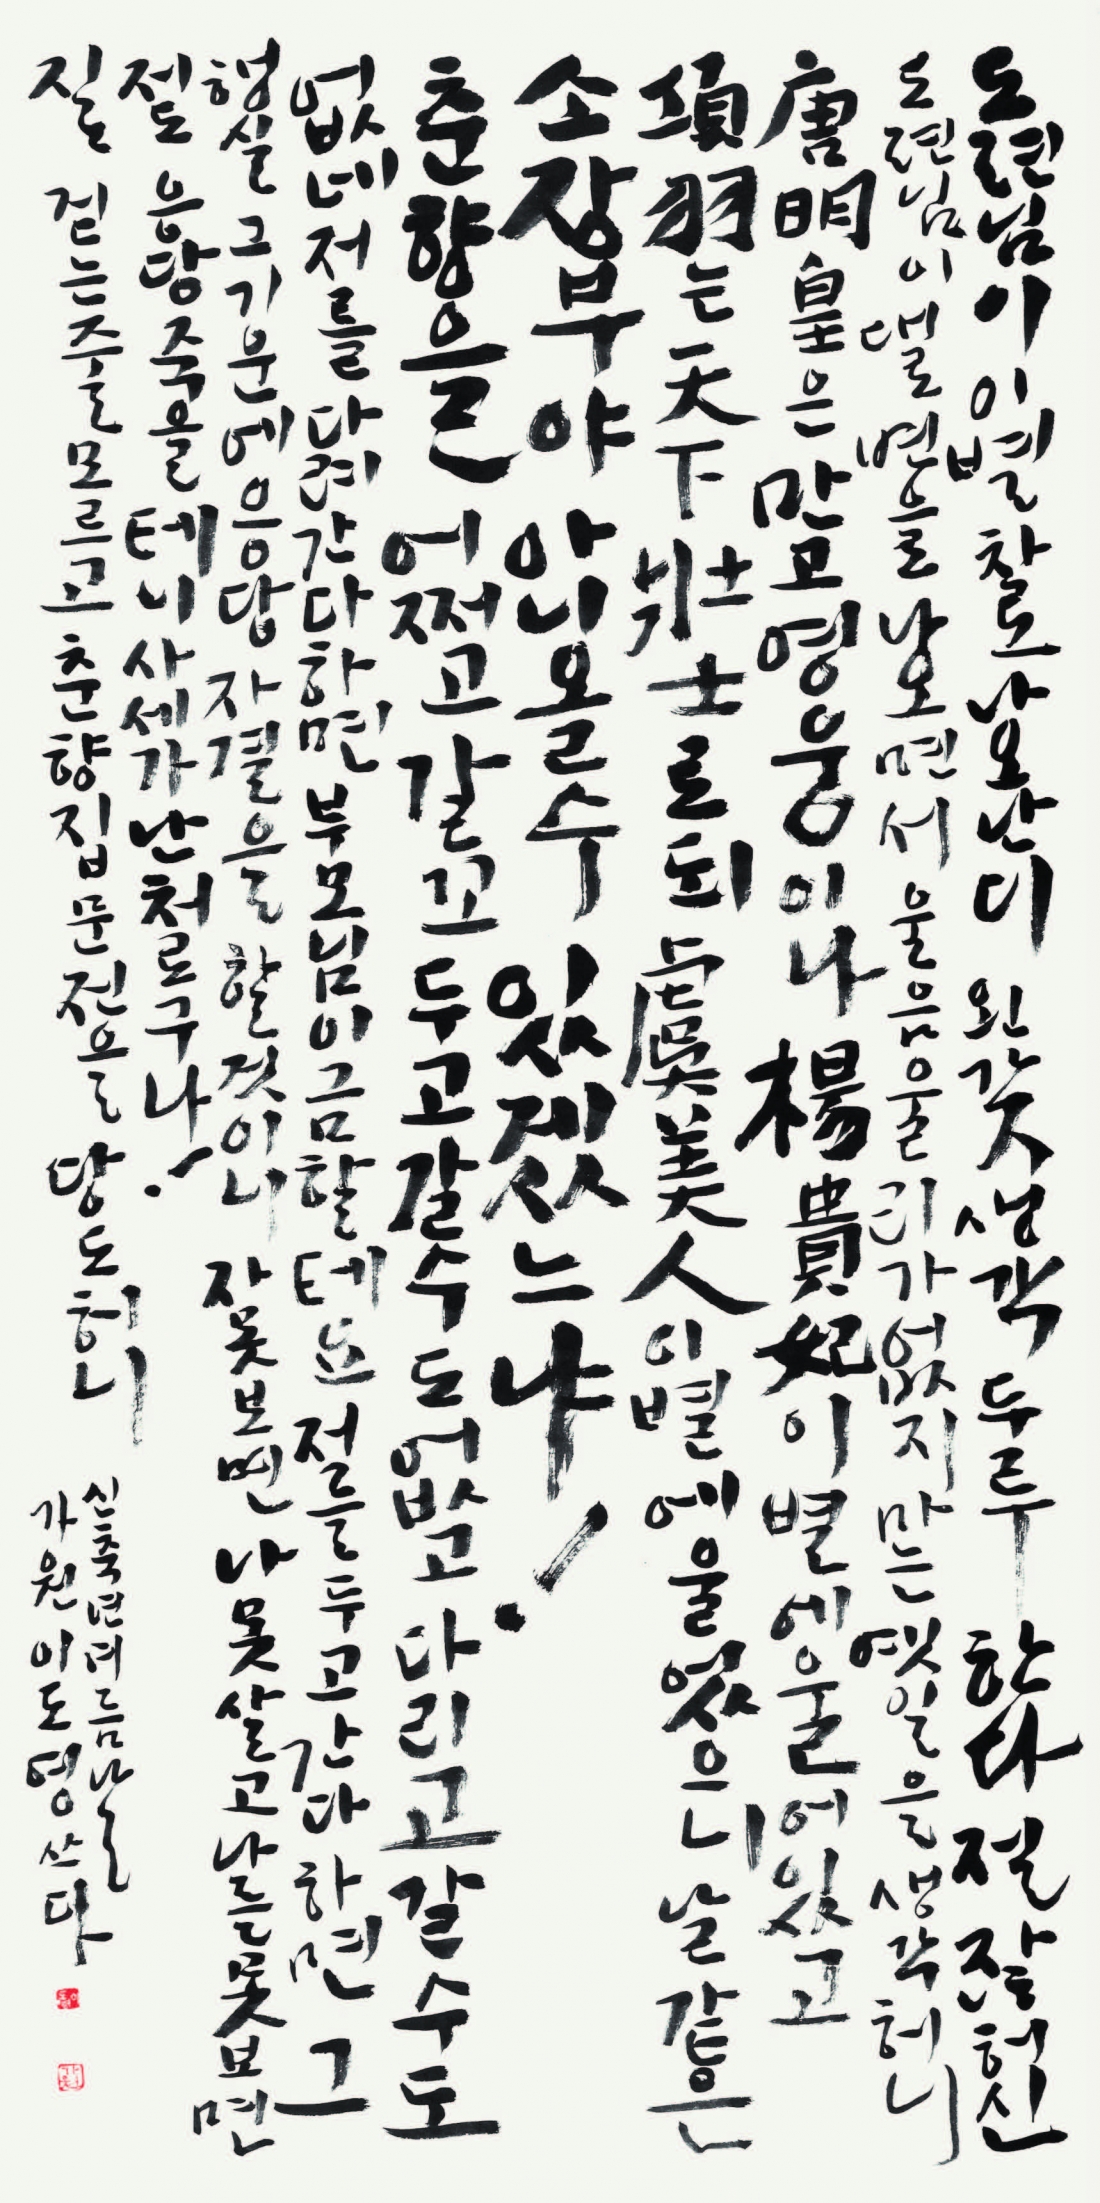 도련님이 이별차로 나오난디 왼갖 생각 두루 한다 점잖허신
도련님이 대로변을 나오면서 울음 울 리가 없지만은 옛일을 생각허니
唐明皇은 만고영웅이나 楊貴妃 이별에 울어있고
項羽는 天下壯士로되 虞美人 이별에 울었으니 날같은
소장부야 아니 올 수 있겠느냐!
춘향을 어쩌고 갈꼬 두고 갈 수도 없고 다리고 갈 수도
없네 저를 다려간다 하면 부모님이 금할 테요 저를 두고 간다 하면 그
행실 그 기운에 응당 자결을 할 것이니 자 못보면 나 못살고 나를 못보면
절도 응당 죽을 테니 사세가 난처로구나!
질 걷는 줄 모르고 춘향집 문전을 당도허니
신축년 여름날
가원 이도영 쓰다